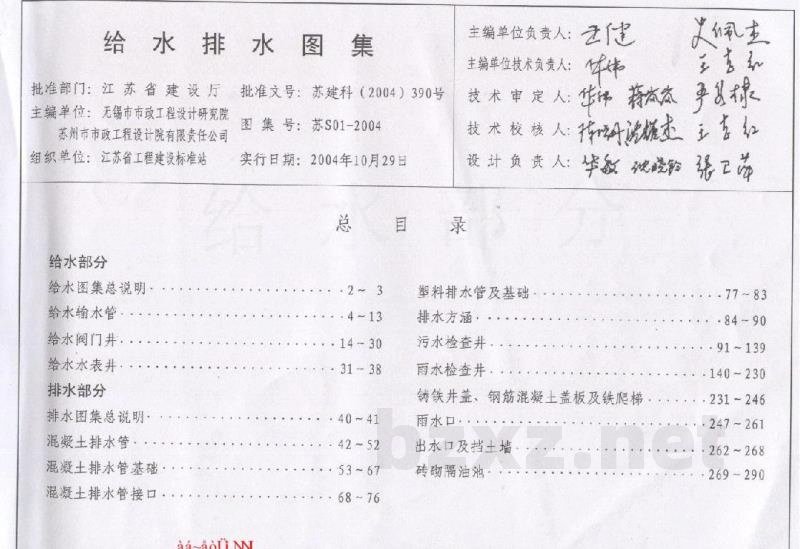 给水排水图集
批准部门：江苏省建设厅 批准文号：苏建科（2004）390号
主编单位：无锡市市政工程设计研究院
苏州市市政工程设计院有限责任公司
图集号：苏S01-2004
组织单位：江苏省工程建设标准站 实行日期：2004年10月29日
主编单位负责人：
主编单位技术负责人：华伟
技术审定人：华伟
技术校核人：
设计负责人：华敏
总目录
给水部分
给水图集总说明 2～3
给水输水管 4～13
给水阀门井 14～30
给水水表井 31～38
排水部分
排水图集总说明 40～41
混凝土排水管 42～52
混凝土排水管基础 53～67
混凝土排水管接口 68～76
塑料排水管及基础 77～83
排水方涵 84～90
污水检查井 91～139
雨水检查井 140～230
铸铁井盖、钢筋混凝土盖板及铁爬梯 231～246
雨水口 247～261
出水口及挡土墙 262～268
砖砌隔油池 269～290
bzxz.net